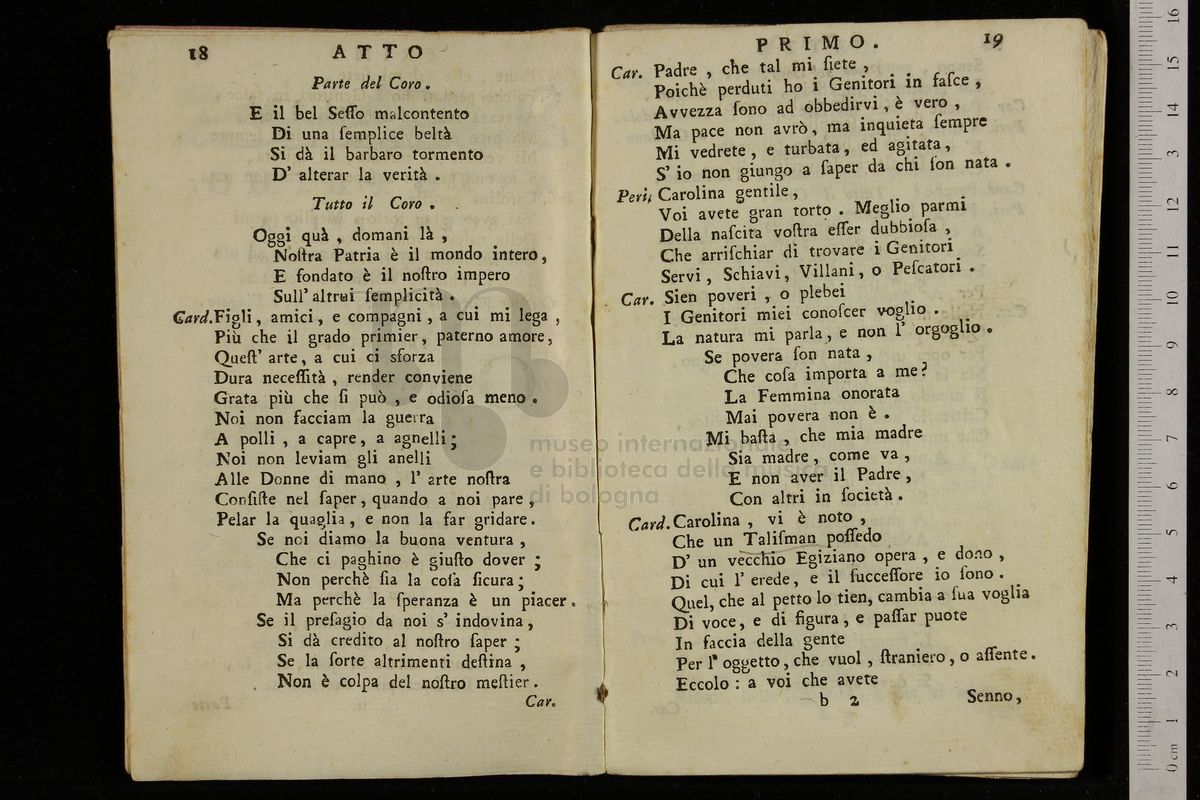 18 ATTO
Parte del Coro.
E il bel Seſſo malcontento
Di una ſemplice beltà
Si dà il barbaro tormento
D' alterar la verità .
Tutto il Coro .
Oggi quà , domani là ,
Noſtra Patria è il mondo intero,
E fondato è il noſtro impero
Sull' altrui ſemplicità .
Card. Figli, amici, e compagni , a cui mi lega ,
Più che il grado primier, paterno amore,
Queſt' arte, a cui ci sforza
Dura neceſſità , render conviene
Grata più che ſi può , e odioſa meno .
Noi non facciam la guerra
A polli , a capre, a agnelli;
Noi non leviam gli anelli
Alle Donne di mano , l' arte noſtra
Conſiſte nel ſaper, quando a noi pare ,
Pelar la quaglia, e non la far gridare.
Se noi diamo la buona ventura ,
Che ci paghino è giuſto dover ;
Non perchè ſia la coſa ſicura;
Ma perchè la ſperanza è un piacer.
Se il preſagio da noi s' indovina,
Si dà credito al noſtro ſaper ;
Se la ſorte altrimenti deſtina ,
Non è colpa del noſtro meſtier.
Car.
PRIMO. 19
Car. Padre , che tal mi ſiete ,
Poichè perduti ho i Genitori in faſce ,
Avvezza ſono ad obbedirvi, è vero ,
Ma pace non avrò, ma inquieta ſempre
Mi vedrete, e turbata, ed agitata,
S' io non giungo a ſaper da chi ſon nata .
Peri. Carolina gentile,
Voi avete gran torto . Meglio parmi
Della naſcita voſtra eſſer dubbioſa ,
Che arriſchiar di trovare i Genitori
Servi, Schiavi, Villani, o Peſcatori .
Car. Sien poveri , o plebei
I Genitori miei conoſcer voglio .
La natura mi parla, e non l' orgoglio .
Se povera ſon nata ,
Che coſa importa a me?
La Femmina onorata
Mai povera non è .
Mi baſta , che mia madre
Sia madre, come va ,
E non aver il Padre ,
Con altri in ſocietà .
Card. Carolina , vi è noto ,
Che un Taliſman poſſedo
D' un vecchio Egiziano opera , e dono ,
Di cui l' erede, e il ſucceſſore io ſono .
Quel, che al petto lo tien, cambia a ſua voglia
Di voce, e di figura, e paſſar puote
In faccia della gente
Per l' oggetto, che vuol , ſtraniero, o aſſente.
Eccolo : a voi che avete
b 2 Senno,
museo internazionale
e biblioteca della musica
di bologna
16
15
14
13
12
11
10
9
8
7
6
5
4
3
2
1
0 cm